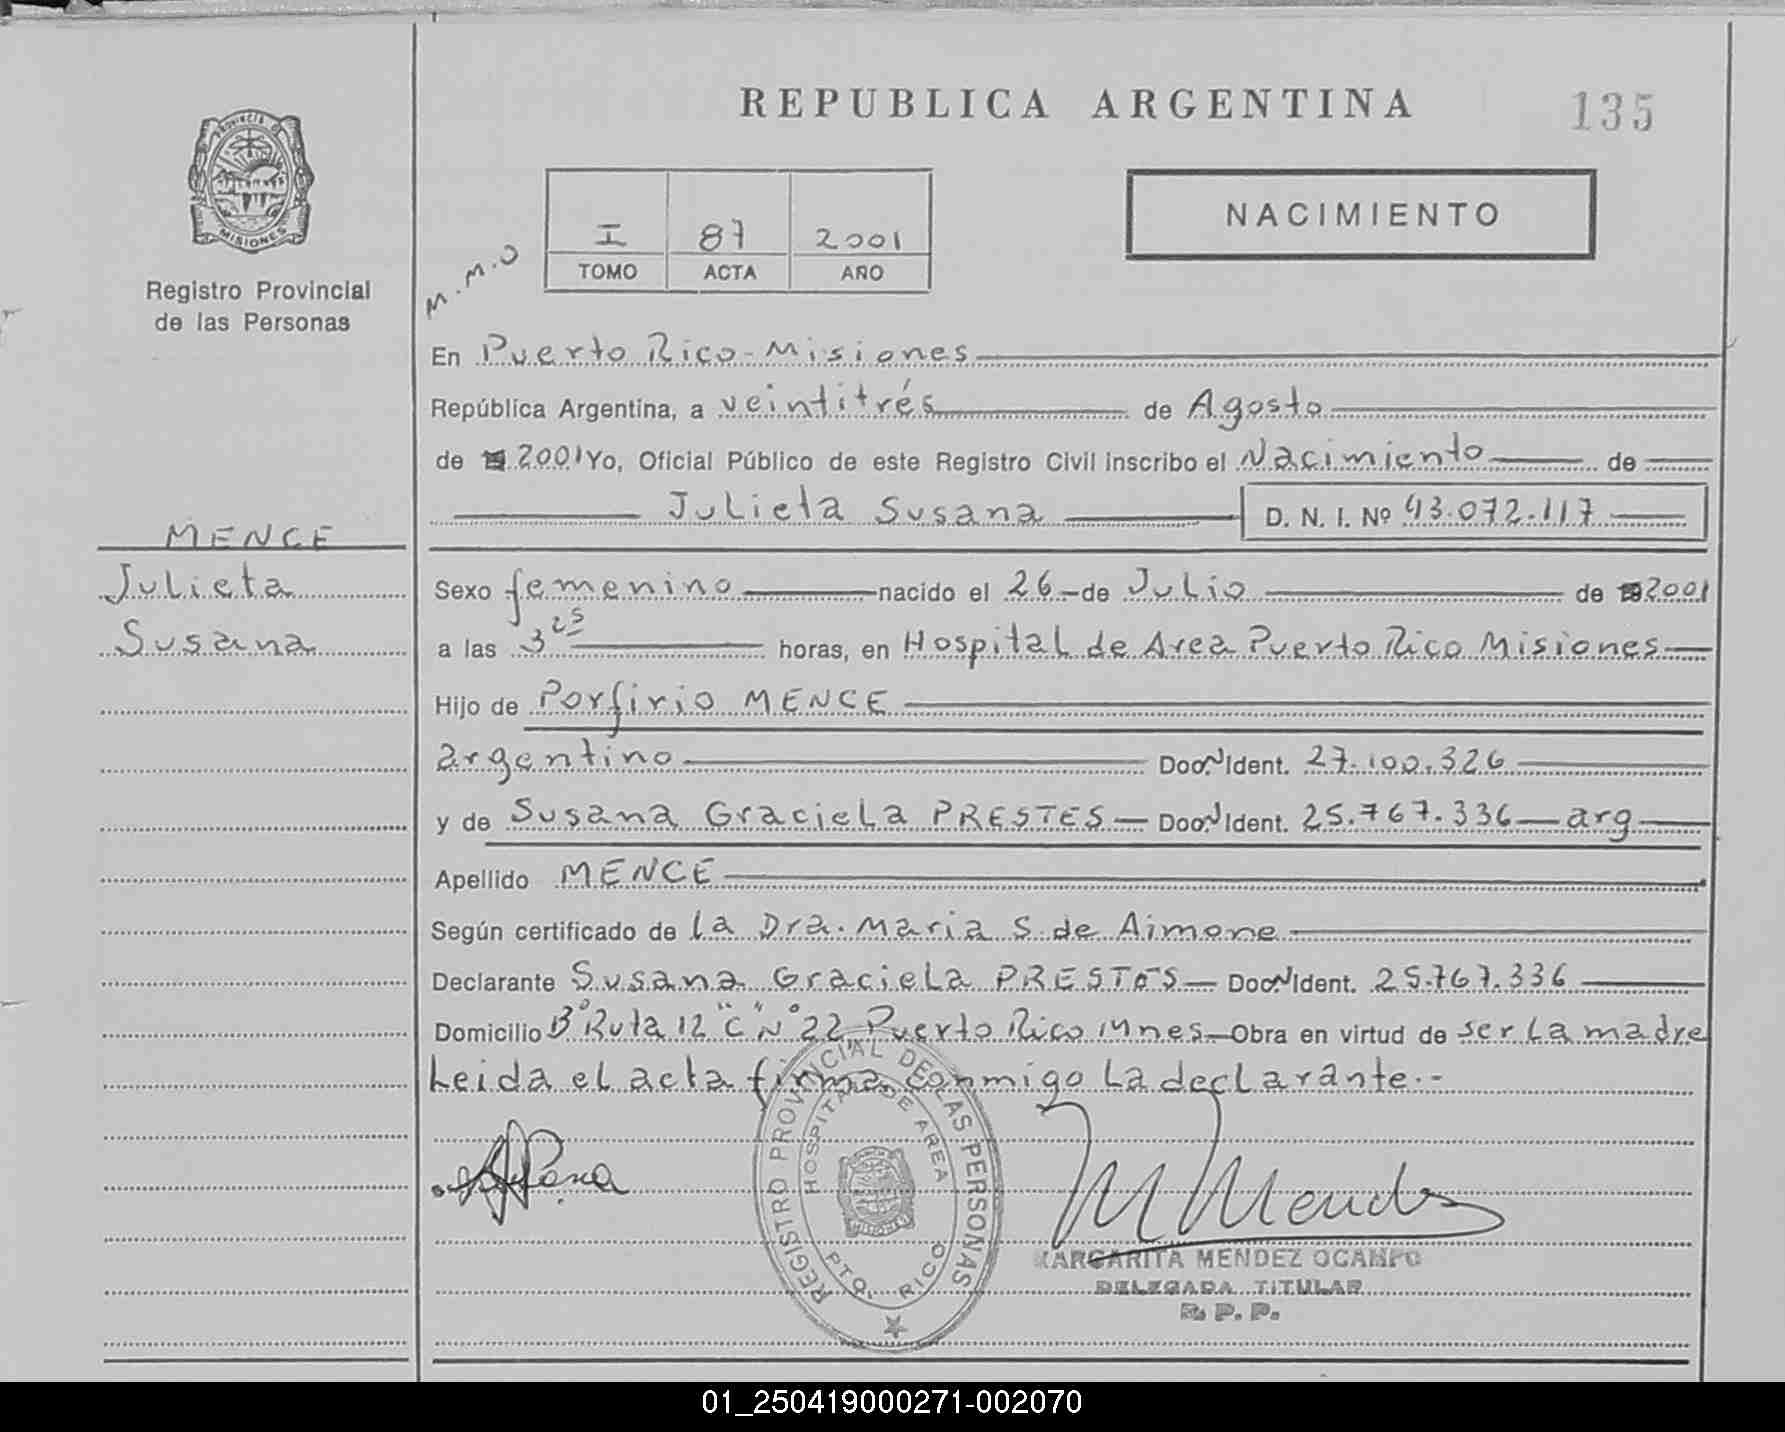 REPUBLICA ARGENTINA
135
PROVINCIA DE
MISIONES
Registro Provincial
de las Personas
I 87 2001
TOMO ACTA AÑO
NACIMIENTO
M.M.O
En Puerto Rico - Misiones
República Argentina, a veintitrés de Agosto
de 2001 Yo, Oficial Público de este Registro Civil inscribo el Nacimiento de
Julieta Susana D. N. I. Nº 43.072.117
MENCE
Julieta
Susana
Sexo femenino nacido el 26 de Julio de 2001
a las 3 25 horas, en Hospital de Area Puerto Rico Misiones
Hijo de Porfirio MENCE
argentino Doc. N Ident. 27.100.326
y de Susana Graciela PRESTES Doc. N Ident. 25.767.336 arg
Apellido MENCE
Según certificado de la Dra. Maria S. de Aimone
Declarante Susana Graciela PRESTES Doc. N Ident. 25.767.336
Domicilio Bº Ruta 12 "C" Nº 22 Puerto Rico Mnes Obra en virtud de ser la madre
Leida el acta firma conmigo la declarante.-
REGISTRO PROVINCIAL DE LAS PERSONAS
HOSPITAL DE AREA
PTO. RICO
M Mendz
MARGARITA MENDEZ OCAMPO
DELEGADA TITULAR
R. P. P.
01_250419000271-002070